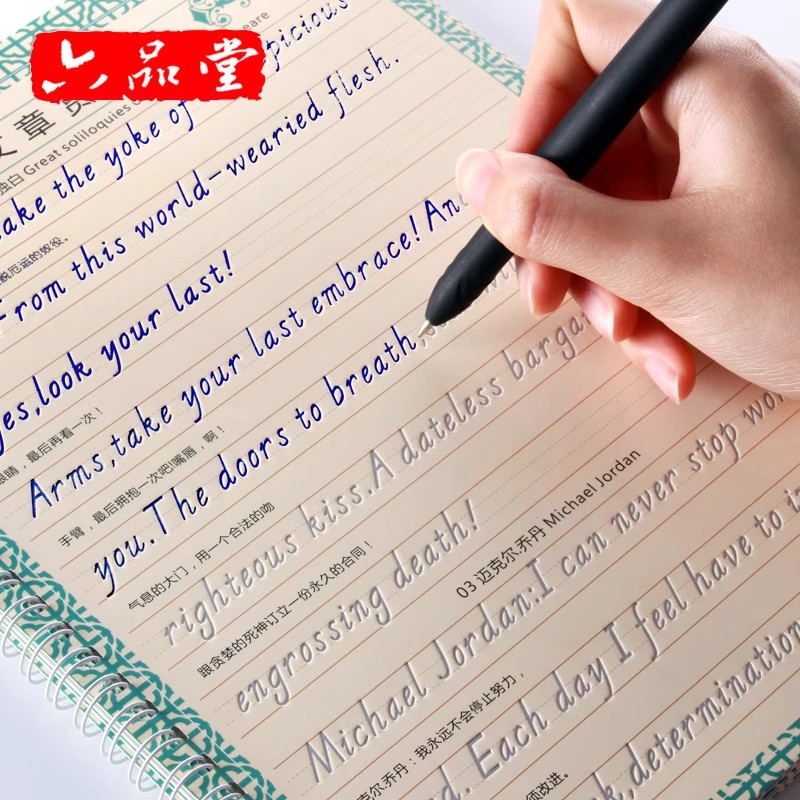 六品堂
文章
独白 Great soliloquies
take the yoke of
脱厄运的奴役。
From this world-wearied flesh.
look your last!
眼睛，最后再看一次！
Arms,take your last embrace! And
手臂，最后拥抱一次吧!嘴唇，啊！
you.The doors to breath,
气息的大门，用一个合法的吻
righteous kiss.A dateless
engrossing death!
跟贪婪的死神订立一份永久的合同！
03 迈克尔.乔丹 Michael Jordan
Michael Jordan:I can never stop
克尔.乔丹：我永远不会停止努力，
Each day I feel have to
determination